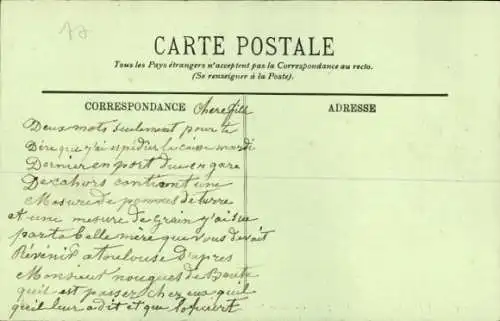 CARTE POSTALE
Tous les Pays étrangers n'acceptent pas la Correspondance au recto.
(Se renseigner à la Poste).
CORRESPONDANCE
ADRESSE
Chere fille
Deux mots seulement pour te
Dire que j'ai espédier la caise mardi
Dernier en port du en gare
De cahors contient une
Mesure de pommes de terre
et une mesure de grain y'ai su
par ta belle mère que vous devait
Révénir a toulouse D'apres
Monsieur nouques de
quil est passer chez eux quil
quil leur a dit et que